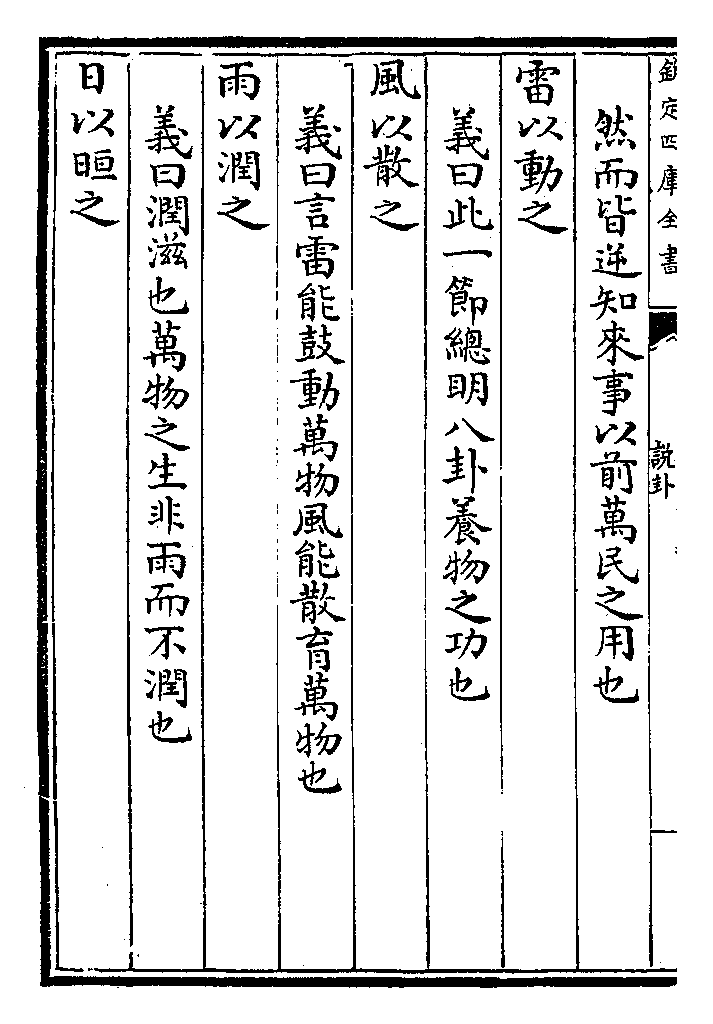 欽定四庫全書
說卦
然而皆逆知來事以前萬民之用也
雷以動之
義曰此一節總明八卦養物之功也
風以散之
義曰言雷能鼓動萬物風能散育萬物也
雨以潤之
義曰潤滋也萬物之生非雨而不潤也
日以晅之